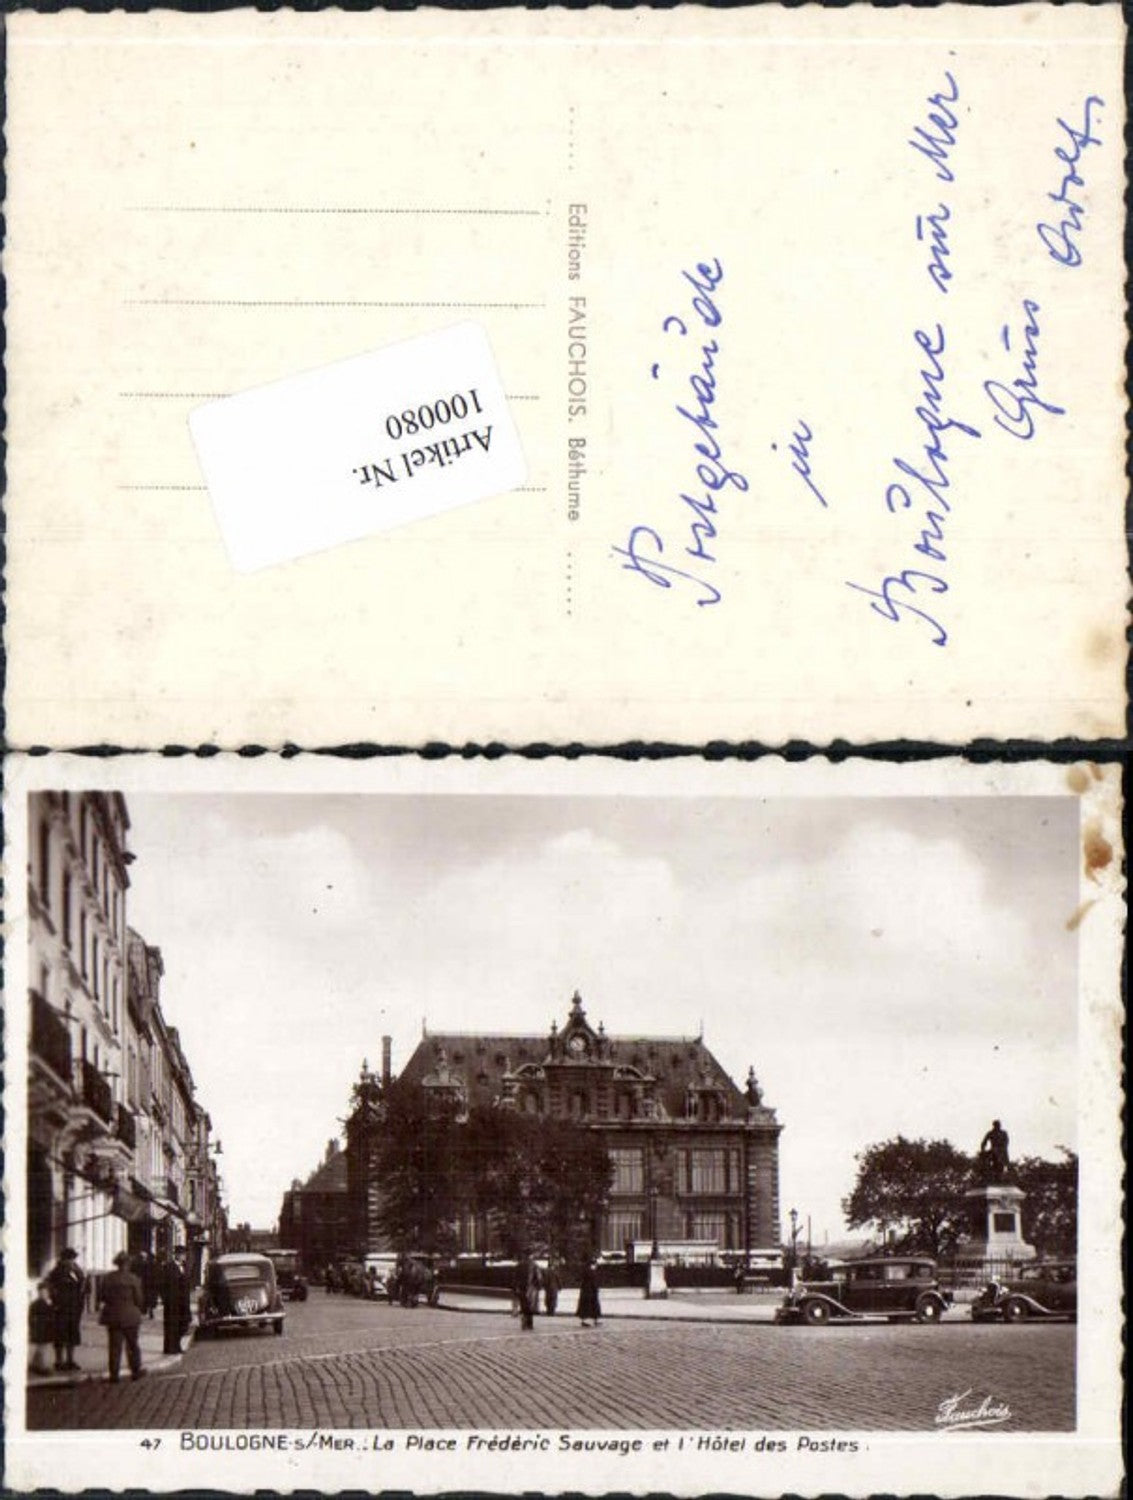 Postgebäude
in
Boulogne sur Mer.
Gruss Adolf.
Editions FAUCHOIS. Béthume
Artikel Nr.
100080
Fauchois
47 BOULOGNE-S/-MER.: La Place Frédéric Sauvage et l'Hôtel des Postes.